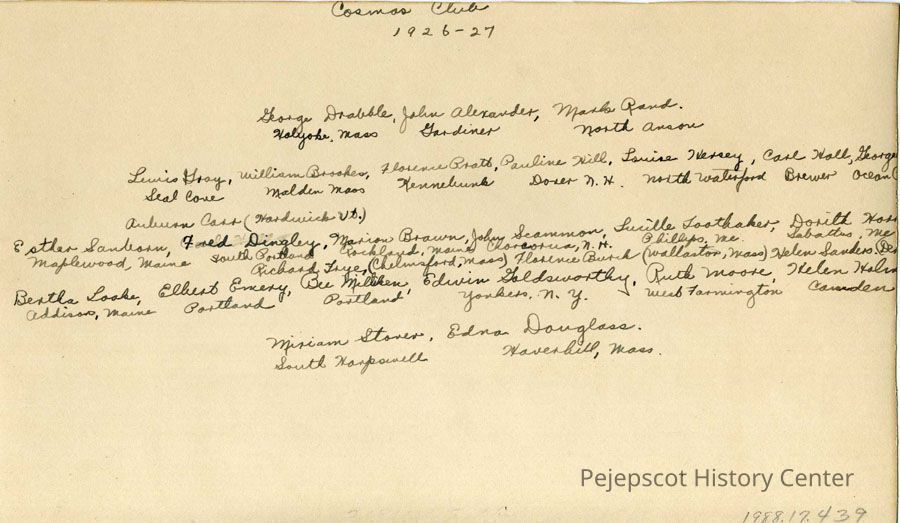 Cosmos Club
1926-27
George Drabble, John Alexander, Mark Rand.
Holyoke, Mass Gardiner North Anson
Lewis Gray, William Brookes, Florence Pratt, Pauline Hill, Louise Hersey, Carl Hall, George
Seal Cove Malden Mass Kennebunk Dover N.H. North Waterford Brewer Ocean
Auburn Carr (Hardwick Vt.)
Esther Sanborn, Fred Dingley, Marion Brown, John Scammon, Lucille Toothaker, Dorith
Maplewood, Maine South Portland Rockland, Maine Chocorua, N.H. Phillips, Me. Sabattus, Me
Richard Frye, (Chelmsford, Mass) Florence Burck (Wallaston, Mass) Helen Sanders
Bertha Looke, Elbert Emery, Bee Milliken, Edwin Goldsworthy, Ruth Moore, Helen
Addison, Maine Portland Portland Yonkers, N.Y. West Farmington Camden
Miriam Stover, Edna Douglass.
South Harpswell Haverhill, Mass.
Pejepscot History Center
1988.17.439